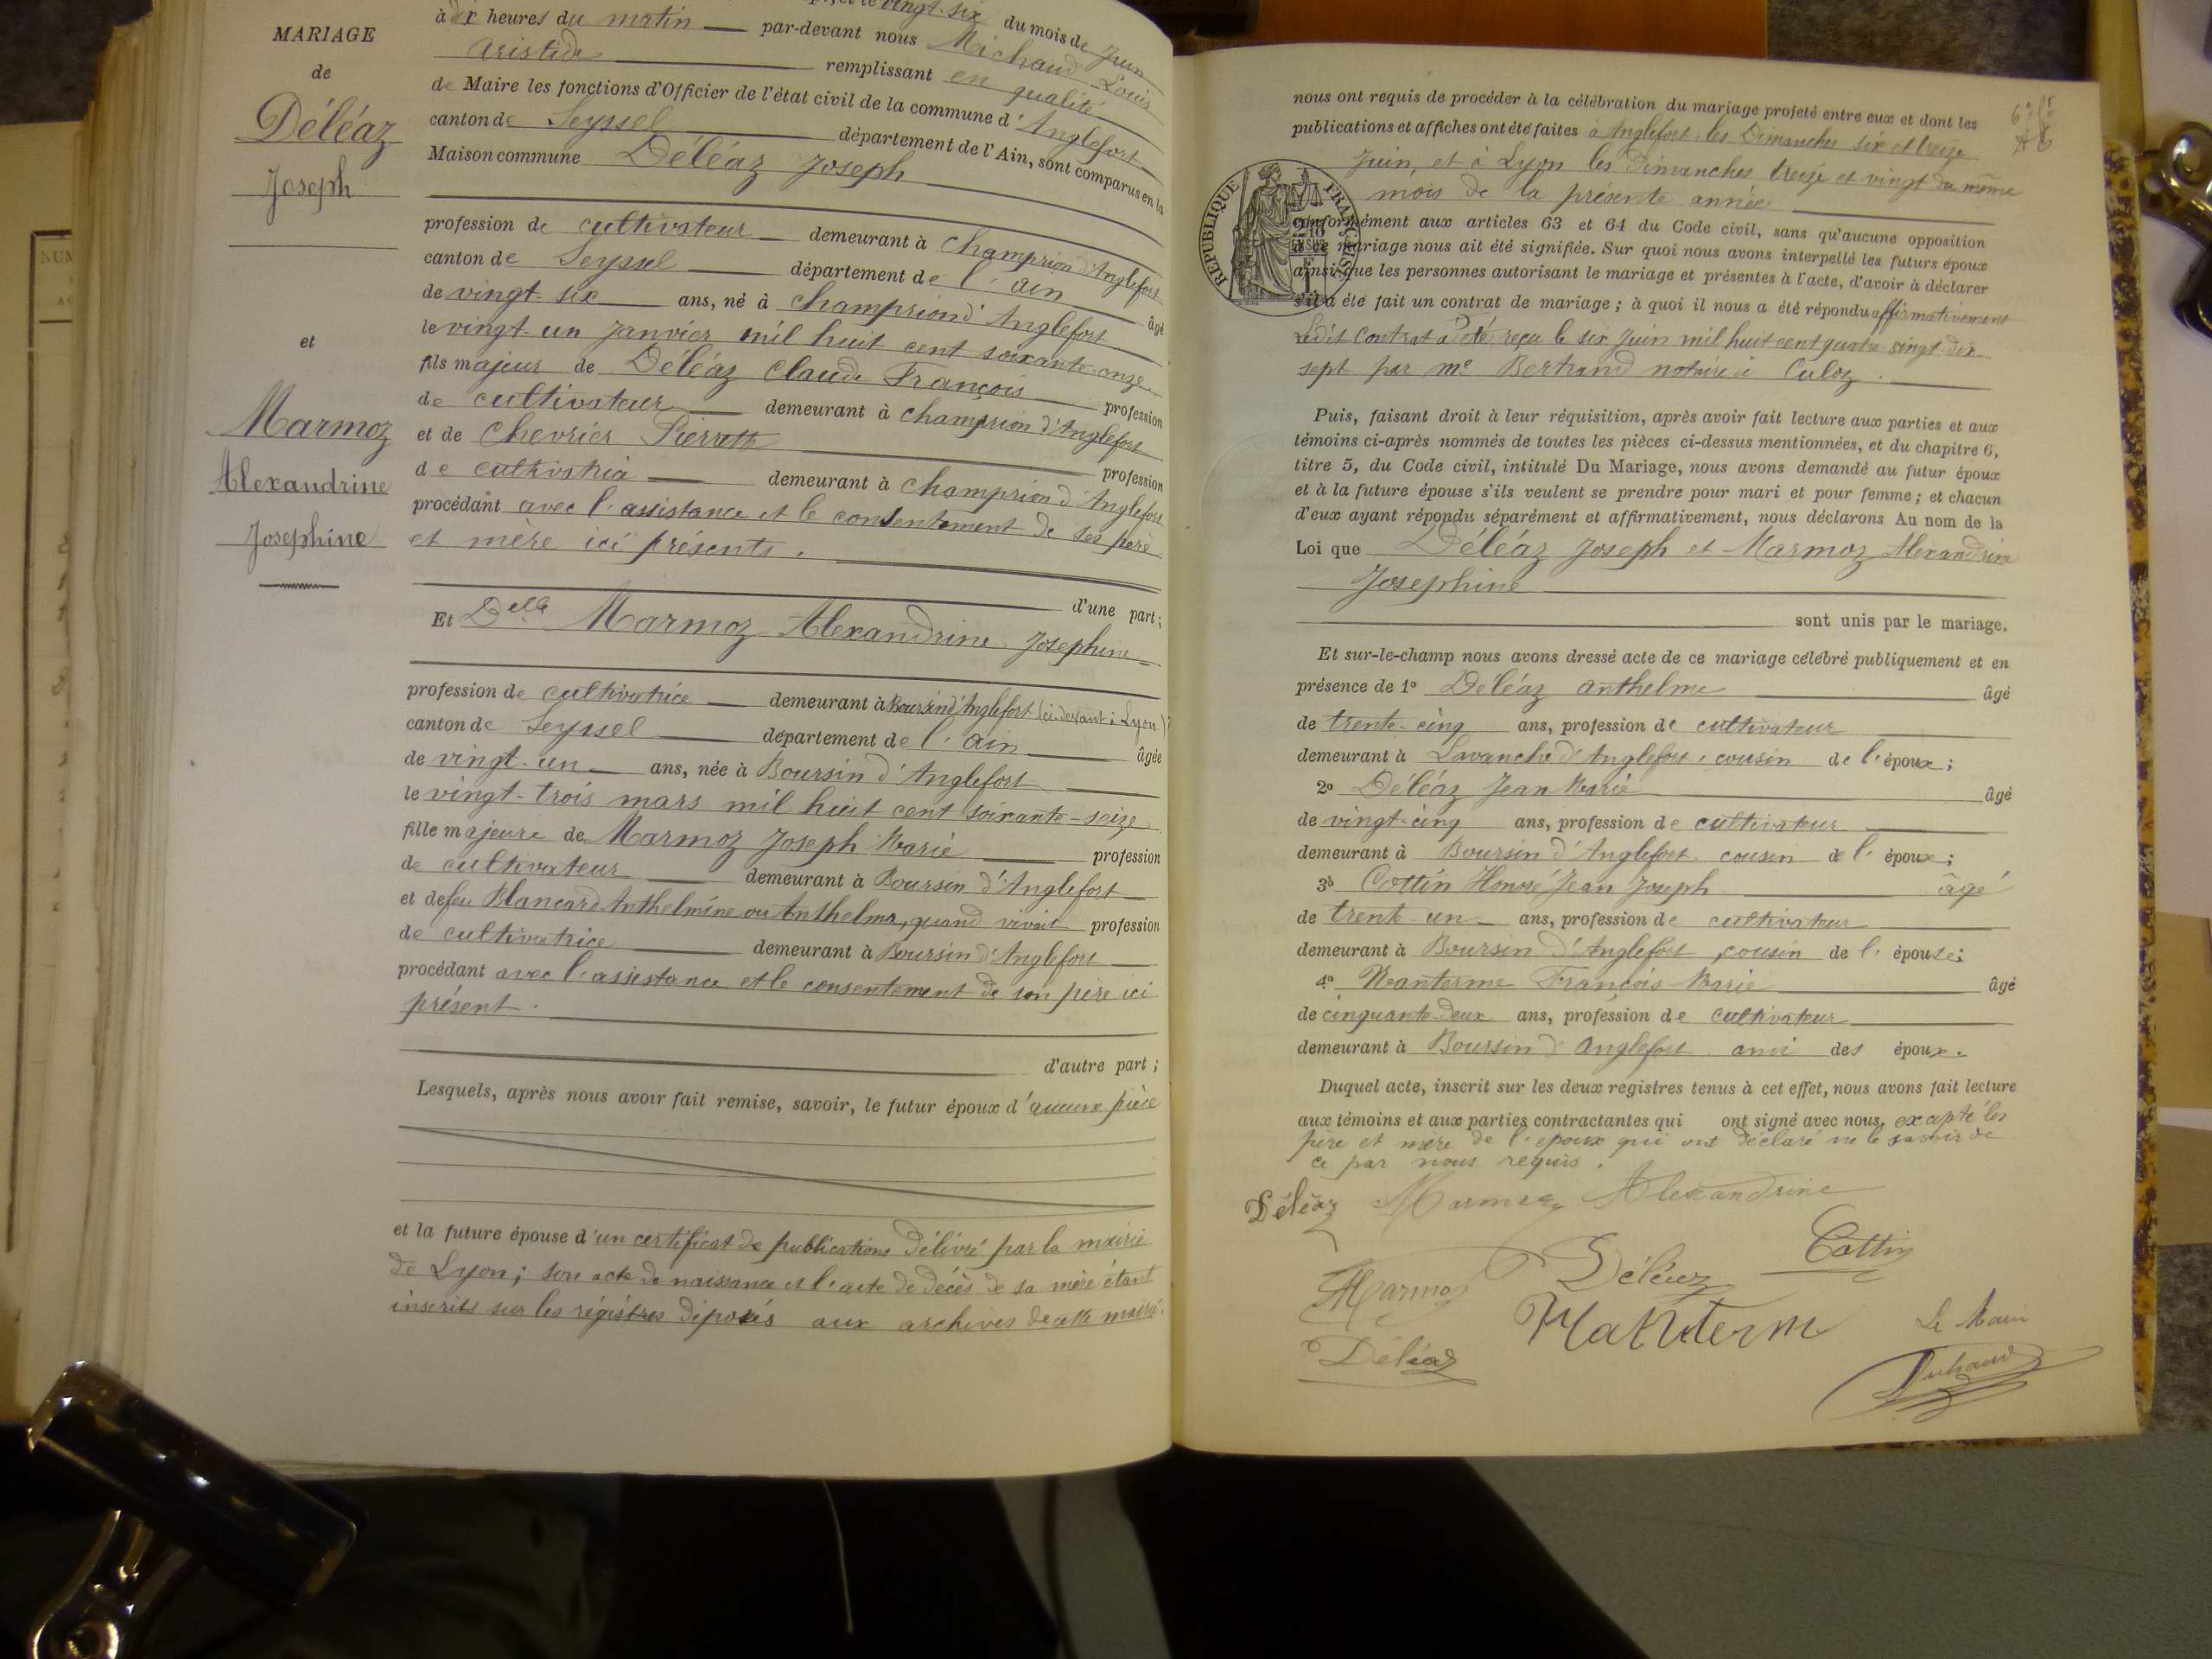 MARIAGE
de
Déléaz
Joseph
et
Marmoz
Alexandrine
Josephine
vingt-six du mois de Juin
à dix heures du matin par-devant nous Michaud Louis
Aristide remplissant en qualité
de Maire les fonctions d'Officier de l'état civil de la commune d'Anglefort
canton de Seyssel département de l'Ain, sont comparus en la
Maison commune Déléaz Joseph
profession de cultivateur demeurant à Champrion d'Anglefort
canton de Seyssel département de l'Ain âgé
de vingt-six ans, né à Champriond'Anglefort
le vingt-un Janvier mil huit cent soixante-onze
fils majeur de Déléaz Claude François profession
de cultivateur demeurant à Champrion d'Anglefort
et de Chevrier Pierrette profession
de cultivatrice demeurant à Champrion d'Anglefort
procédant avec l'assistance et le consentement de ses père
et mère ici présents.
d'une part;
Et Delle Marmoz Alexandrine Josephine
profession de cultivatrice demeurant à Boursin d'Anglefort (ci-devant à Lyon)
canton de Seyssel département de l'Ain âgée
de vingt-un ans, née à Boursin d'Anglefort
le vingt-trois mars mil huit cent soixante-seize
fille majeure de Marmoz Joseph Marie profession
de cultivateur demeurant à Boursin d'Anglefort
et de feu Blancard Anthelmine ou Anthelma, quand vivait profession
de cultivatrice demeurant à Boursin d'Anglefort
procédant avec l'assistance et le consentement de son père ici
présent.
d'autre part;
Lesquels, après nous avoir fait remise, savoir, le futur époux d'aucune pièce
et la future épouse d'un certificat de publications délivré par la mairie
de Lyon; son acte de naissance et l'acte de décès de sa mère étant
inscrits sur les régistres déposés aux archives de cette mairie.
nous ont requis de procéder à la célébration du mariage projeté entre eux et dont les
publications et affiches ont été faites à Anglefort les Dimanches six et treize
Juin, et à Lyon les Dimanches treize et vingt du même
mois de la présente année
conformément aux articles 63 et 64 du Code civil, sans qu'aucune opposition
à ce mariage nous ait été signifiée. Sur quoi nous avons interpellé les futurs époux
ainsi que les personnes autorisant le mariage et présentes à l'acte, d'avoir à déclarer
s'il a été fait un contrat de mariage; à quoi il nous a été répondu affirmativement
Ledit Contrat a été reçu le six Juin mil huit cent quatre-vingt-dix
sept par Me Bertrand notaire à Culoz.
RÉPUBLIQUE FRANÇAISE
Puis, faisant droit à leur réquisition, après avoir fait lecture aux parties et aux
témoins ci-après nommés de toutes les pièces ci-dessus mentionnées, et du chapitre 6,
titre 5, du Code civil, intitulé Du Mariage, nous avons demandé au futur époux
et à la future épouse s'ils veulent se prendre pour mari et pour femme; et chacun
d'eux ayant répondu séparément et affirmativement, nous déclarons Au nom de la
Loi que Déléaz Joseph et Marmoz Alexandrine
Josephine
sont unis par le mariage.
Et sur-le-champ nous avons dressé acte de ce mariage célébré publiquement et en
présence de 1º Déléaz Anthelme âgé
de trente-cinq ans, profession de cultivateur
demeurant à Lavanche d'Anglefort, cousin de l'époux;
2º Déléaz Jean Marie âgé
de vingt-cinq ans, profession de cultivateur
demeurant à Boursin d'Anglefort. cousin de l'époux;
3º Cottin Honoré Jean Joseph âgé
de trente-un ans, profession de cultivateur
demeurant à Boursin d'Anglefort, cousin de l'épouse;
4º Nanterme François Marie âgé
de cinquante-deux ans, profession de cultivateur
demeurant à Boursin d'Anglefort. ami des époux.
Duquel acte, inscrit sur les deux registres tenus à cet effet, nous avons fait lecture
aux témoins et aux parties contractantes qui ont signé avec nous, excepté les
père et mère de l'époux qui ont déclaré ne le savoir de
ce par nous requis.
Déléaz Marmoz Alexandrine
Marmoz Déléaz Cottin
Déléaz Nanterm Le Maire